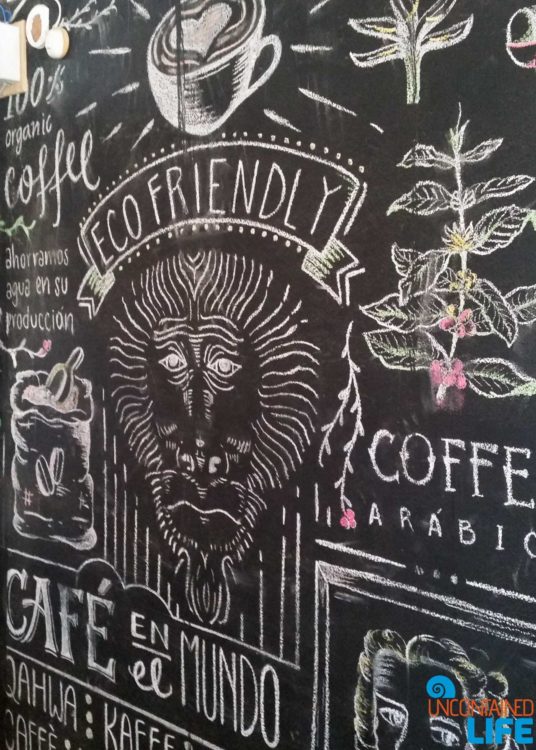 100%
organic
coffee
ECO FRIENDLY
ahorramos
agua en su
producción
COFFE
ARÁBIC
CAFÉ EN el MUNDO
QAHWA : KAFFE
CAFFÈ
UNCONTAINED
LIFE